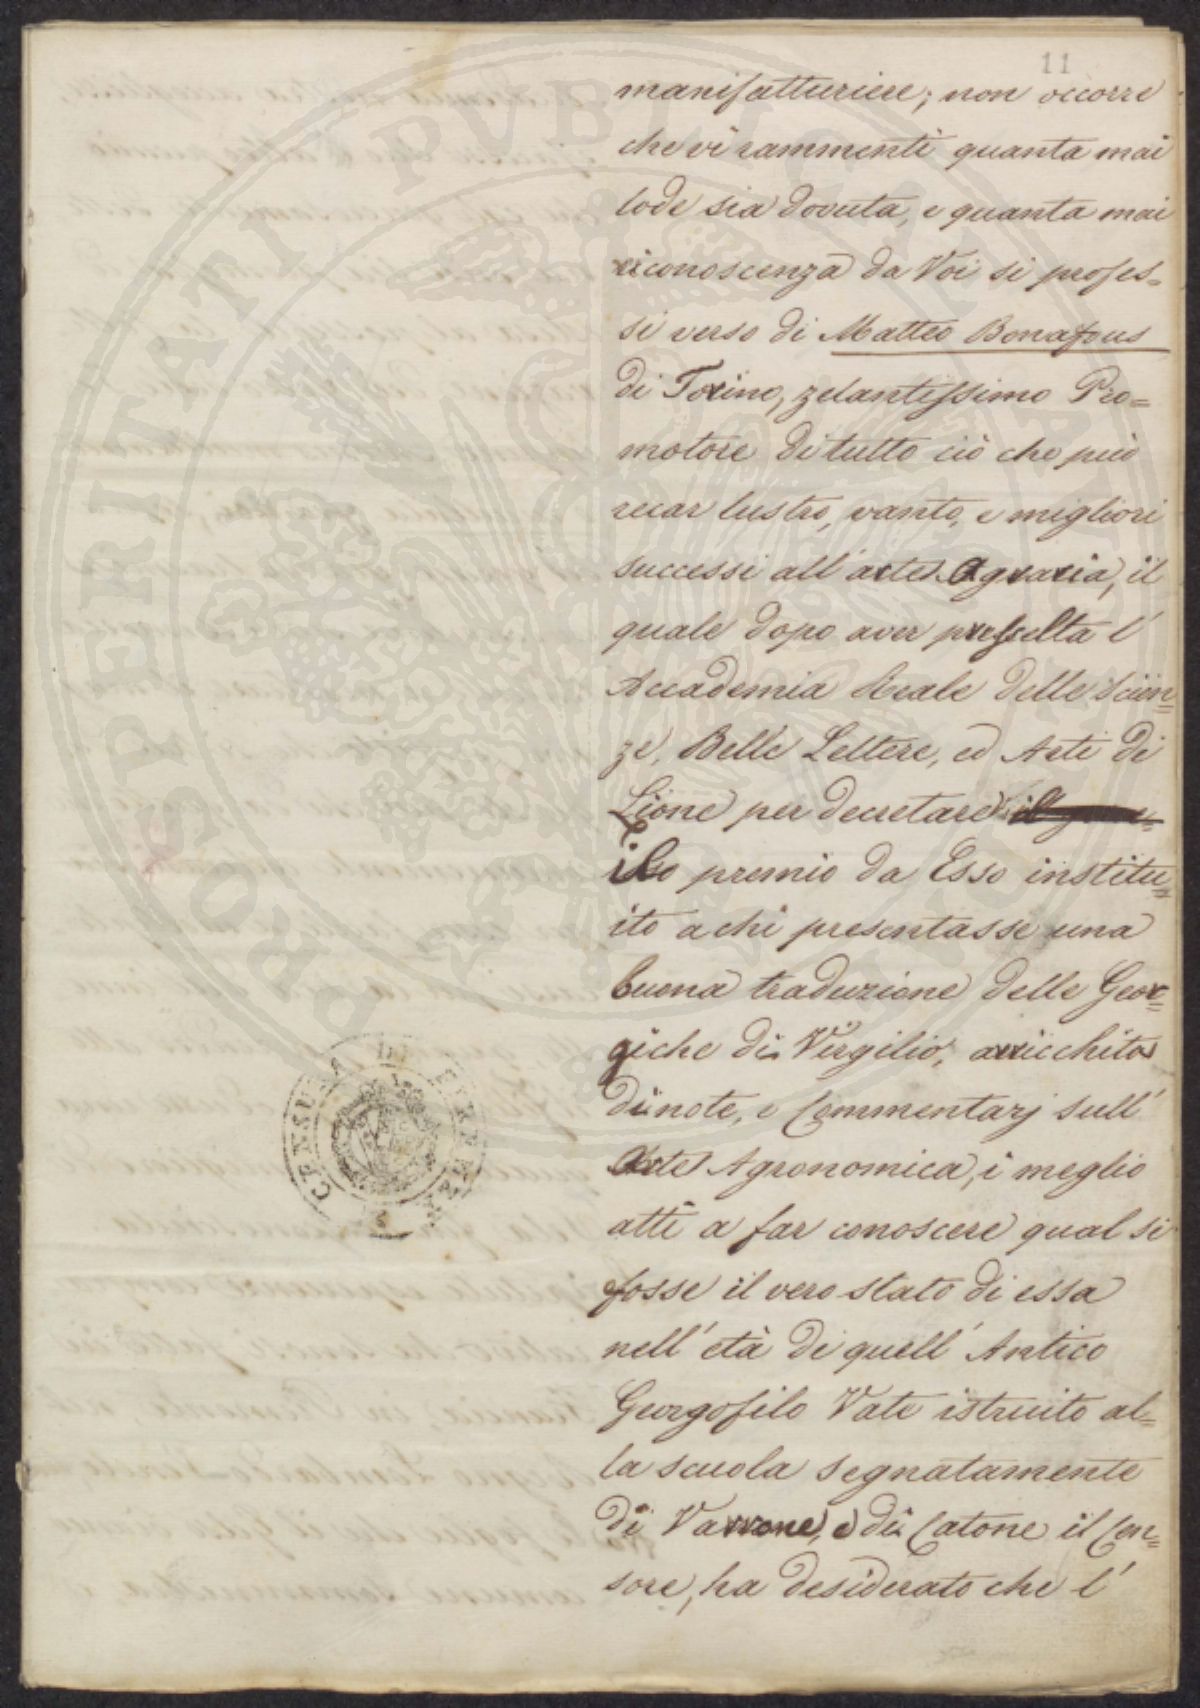 11
manifatturiere; non occorre
che vi rammenti quanta mai
lode sia dovuta, e quanta mai
riconoscenza da Voi si profes=
si verso di Matteo Bonafous
di Torino, zelantissimo Pro=
motore di tutto ciò che può
recar lustro, vanto, e migliori
successi all' arte Agraria, il
quale dopo aver presscelta l'
Accademia Reale delle Scien=
ze, Belle Lettere, ed Arti di
Lione per decretare
il premio da Esso institu=
ito a chi presentasse una
buona traduzione delle Geor=
giche di Virgilio, arricchita
di note, e Commentarj sull'
Arte Agronomica, i meglio
atti a far conoscere qual si
fosse il vero stato di essa
nell' età di quell' Antico
Georgofilo Vate istruito al=
la scuola segnatamente
di Varrone, e di Catone il Cen=
sore, ha desiderato che l'
PROSPERITATI PUBLICAE AUGENDAE
CENSURA DI FIRENZE